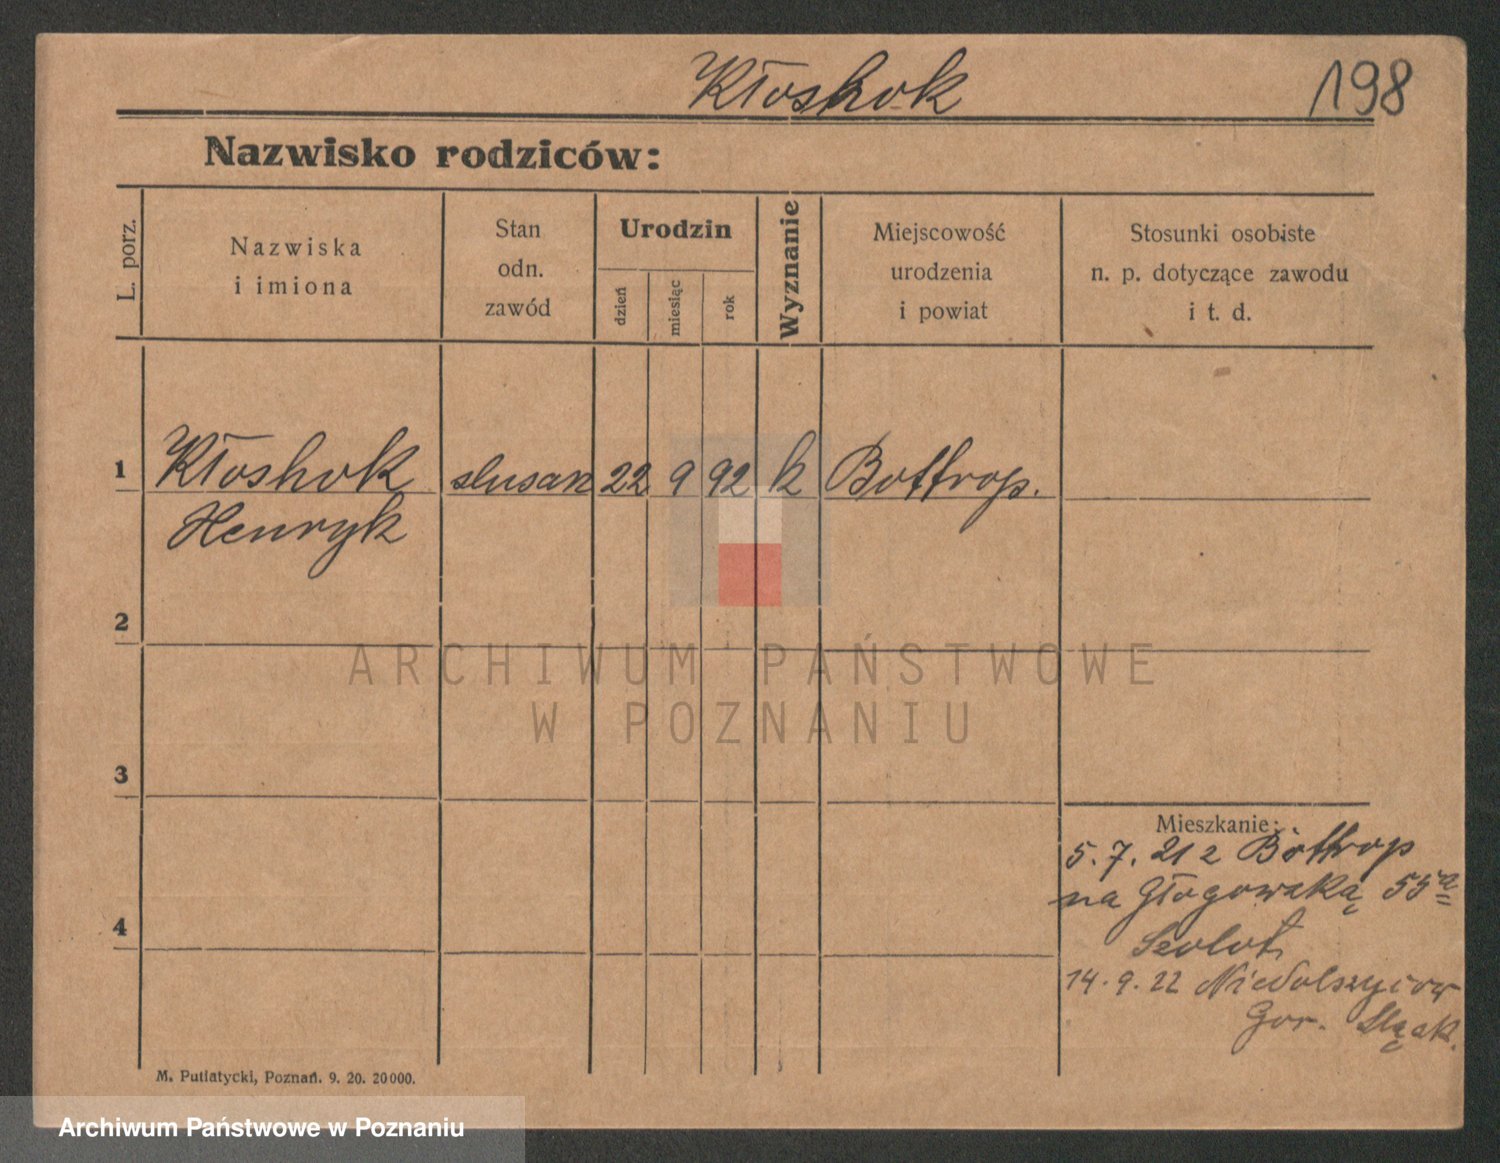 Kłoskok
198
Nazwisko rodziców:
L. porz.
Nazwiska
i imiona
Stan
odn.
zawód
Urodzin
dzień
miesiąc
rok
Wyznanie
Miejscowość
urodzenia
i powiat
Stosunki osobiste
n. p. dotyczące zawodu
i t. d.
1
Kłoshok slusarz 22 9 92 k Bottrop.
Henryk
2
ARCHIWUM PAŃSTWOWE
W POZNANIU
3
Mieszkanie:
5. 7. 21 z Bottrop
na Głogowską 55a
4
14. 9. 22
Gor. Śląsk.
M. Putiatycki, Poznań. 9. 20. 20000.
Archiwum Państwowe w Poznaniu